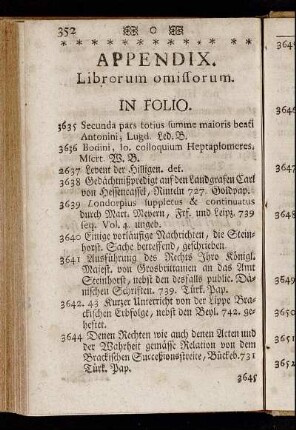 352
* * * * * * * * * * * * * * *
APPENDIX.
Librorum omissorum.
IN FOLIO.
3635 Secunda pars totius summe maioris beati
Antonini, Lugd. Led. B.
3636 Bodini, Io. colloquium Heptaplomeres,
Mscrt. W. B.
2637 Levent der Hilligen. def.
3638 Gedächtnißpredigt auf den Landgrafen Carl
von Hessencassel, Rinteln 727. Goldpap.
3639 Londorpius suppletus & continuatus
durch Mart. Meyern, Frf. und Leipz. 739
seq. Vol. 4. ungeb.
3640 Einige vorläuffige Nachrichten, die Stein-
horst. Sache betreffend, geschrieben
3641 Ausführung des Rechts Ihro Königl.
Majest. von Grosbrittanien an das Amt
Steinhorst, nebst den desfalls public. Dä-
nischen Schriften. 739. Türk. Pap.
3642. 43 Kurzer Unterricht von der Lippe Brac-
kischen Erbfolge, nebst den Beyl. 742. ge-
heftet.
3644 Denen Rechten wie auch denen Acten und
der Wahrheit gemässe Relation von dem
Brackischen Successionsstreite, Bückeb. 731
Türk. Pap.
3645